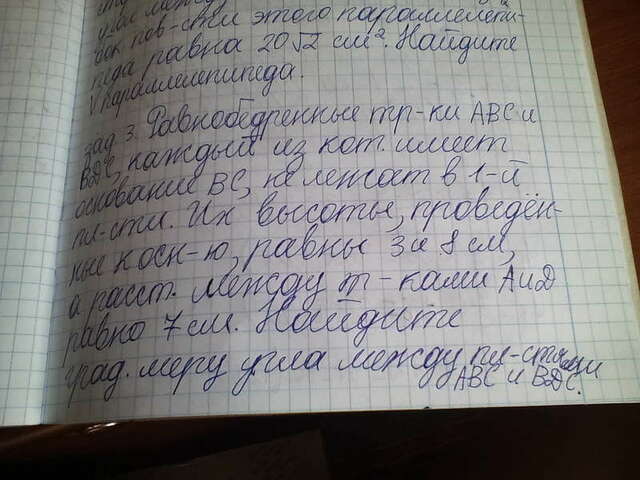 угол между
бок пов-сти этого параллелепи-
педа равна 20√2 см². Найдите
V параллелепипеда.
зад 3. Равнобедренные тр-ки ABC и
BDC, каждый из кот. имеет
основание BC, не лежат в 1-й
пл-сти. Их высоты, проведён-
ные к осн-ю, равны 3 и 8 см,
а расст. между т-ками A и D
равно 7 см. Найдите
град. меру угла между пл-стями
ABC и BDC.